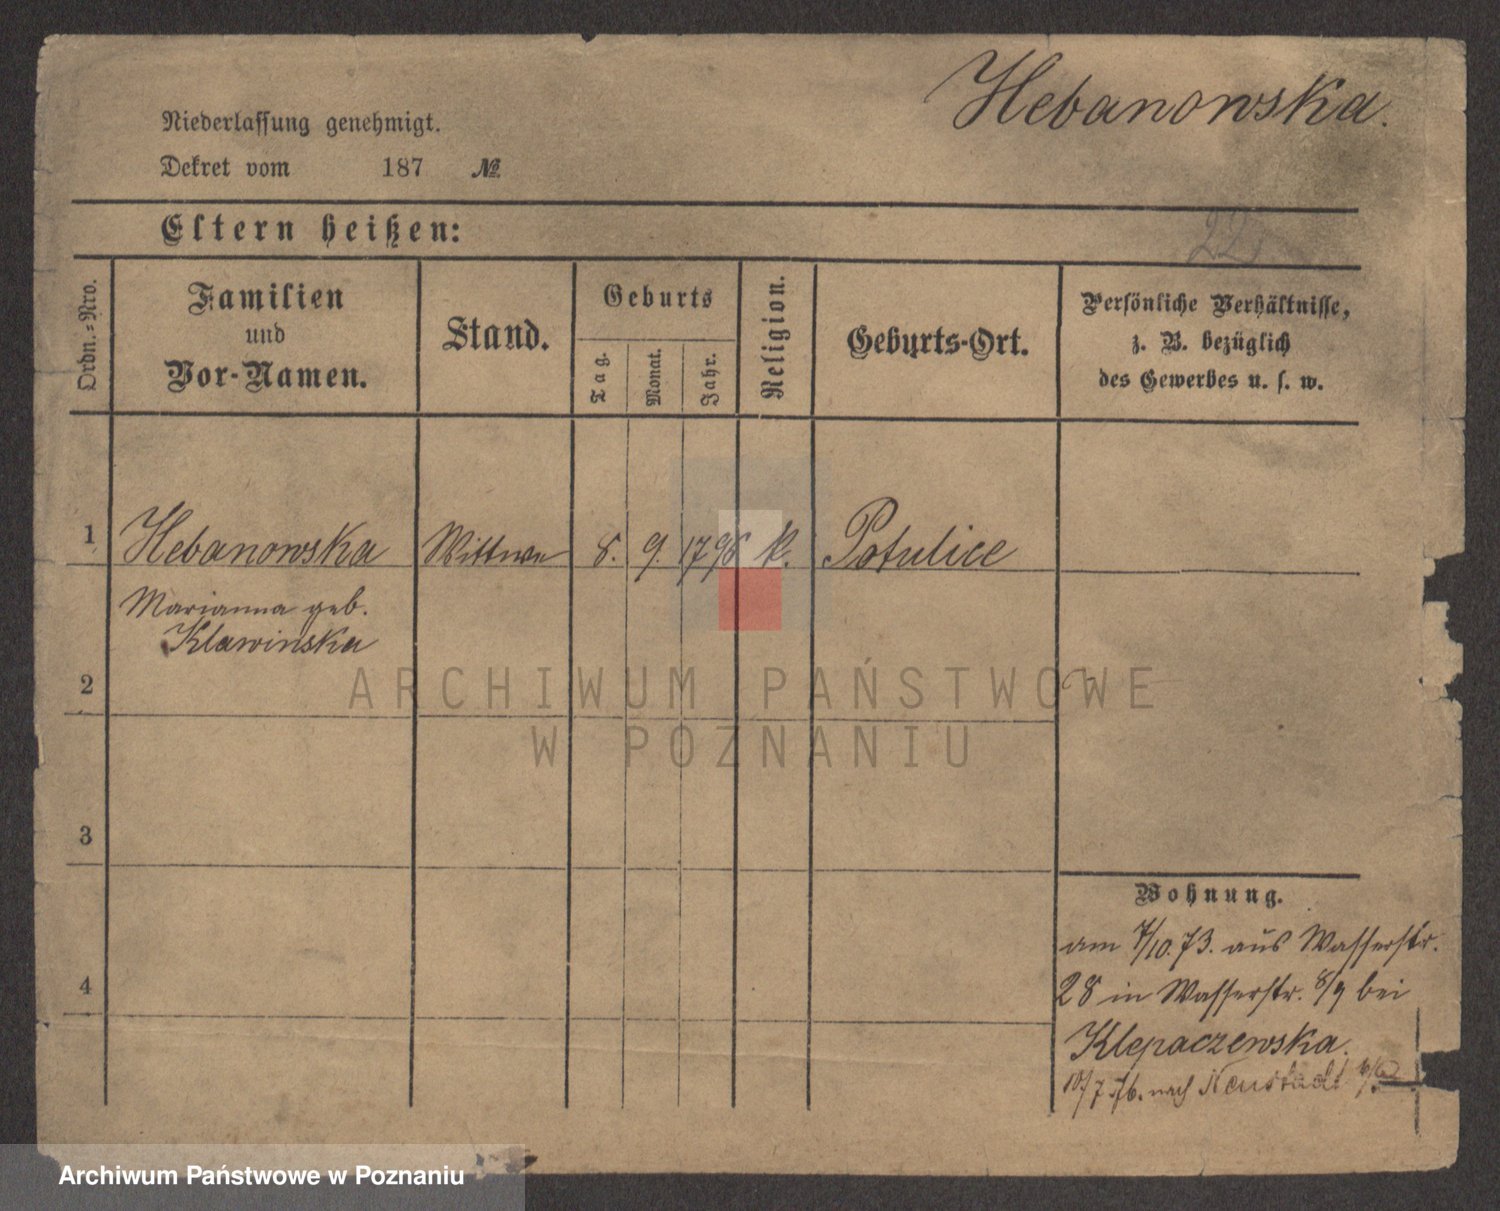 Hebanowska.
Niederlassung genehmigt.
Dekret vom 187 №
Eltern heißen:
22
Ordn.-Nro.
Familien
und
Vor-Namen.
Stand.
Geburts
Tag.
Monat.
Jahr.
Religion.
Geburts-Ort.
Persönliche Verhältnisse,
z. B. bezüglich
des Gewerbes u. s. w.
1 Hebanowska Wittwe 8. 9. 1796 k. Potulice
Marianna geb.
Klawinska
2
ARCHIWUM PAŃSTWOWE
W POZNANIU
3
Wohnung.
am 7/10.73. aus Wasserstr.
28 in Wasserstr. 8/9 bei
4
Klepaczewska.
10/7 76. nach Neustadt
Archiwum Państwowe w Poznaniu